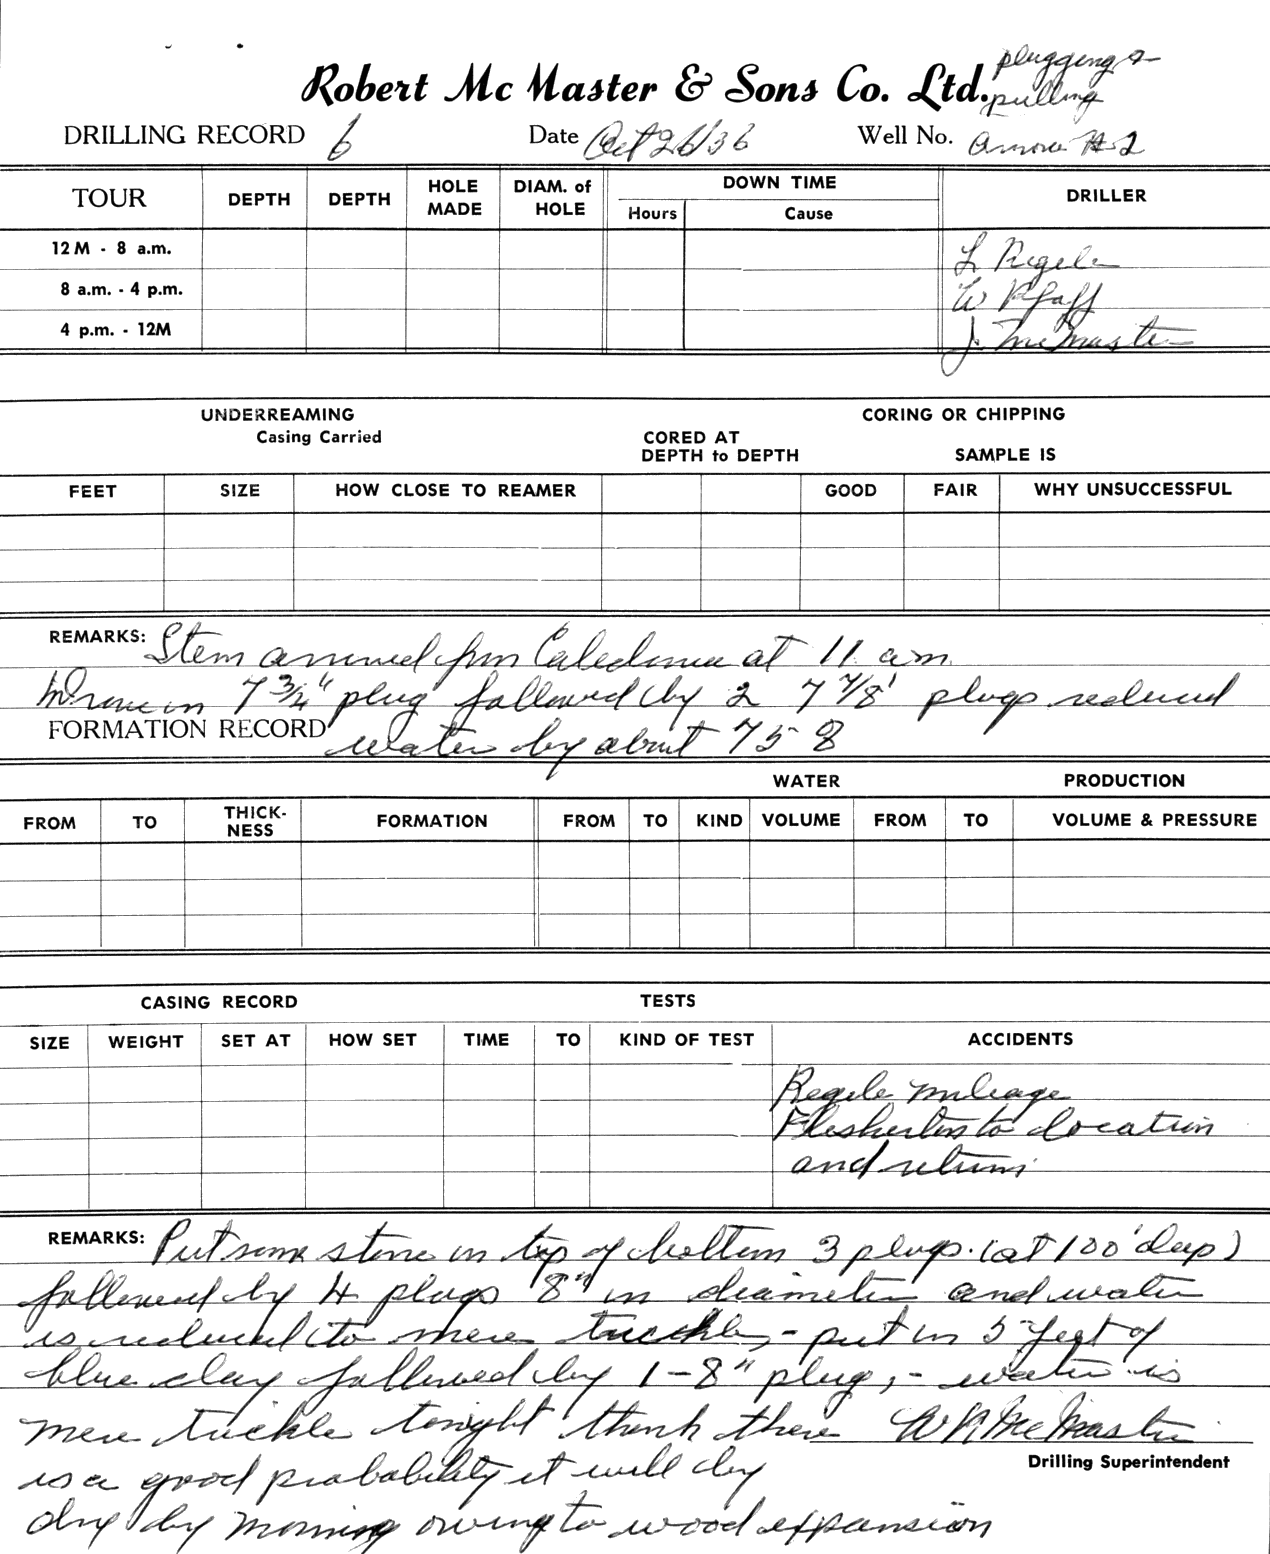 plugging &
Robert McMaster & Sons Co. Ltd. pulling
DRILLING RECORD 6 Date Oct 26/36 Well No. #2
TOUR DEPTH DEPTH HOLE MADE DIAM. of HOLE DOWN TIME Hours Cause DRILLER
12M - 8 a.m. L Regele
8 a.m. - 4 p.m. W Pfaff
4 p.m. - 12M J. McMaster
UNDERREAMING CORING OR CHIPPING
Casing Carried CORED AT
DEPTH to DEPTH SAMPLE IS
FEET SIZE HOW CLOSE TO REAMER GOOD FAIR WHY UNSUCCESSFUL
REMARKS: Stem arrived from Caledonia at 11 a.m.
Drove in 7 3/4" plug followed by 2 7 7/8" plugs reduced
FORMATION RECORD water by about 75 %
WATER PRODUCTION
FROM TO THICK-NESS FORMATION FROM TO KIND VOLUME FROM TO VOLUME & PRESSURE
CASING RECORD TESTS
SIZE WEIGHT SET AT HOW SET TIME TO KIND OF TEST ACCIDENTS
Regele mileage
Flesherton to location
and return
REMARKS: Put some stone in top of bottom 3 plugs. (at 100' deep)
followed by 4 plugs 8" in diameter and water
is reduced to mere trickle, - put in 5 feet of
blue clay followed by 1 - 8" plug, - water is
mere trickle tonight think there W R McMaster
Drilling Superintendent
is a good probability it will dry
dry by morning owing to wood expansion